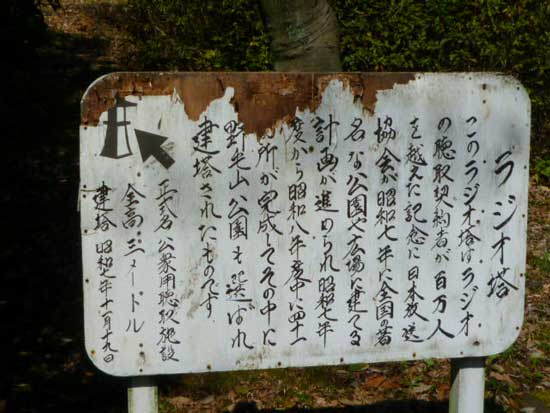 ラジオ塔
このラジオ塔はラジオ
の聴取契約者が百万人
を越えた記念に日本放送
協会が昭和七年に全国の著
名な公園や広場に建てる
計画が進められ昭和七年
度から昭和八年度中に四十一
ヵ所が完成してその中に
野毛山公園も選ばれ
建塔されたものです.
正式名 公衆用聴取施設
全高 三メートル
建塔 昭和七年十一月十九日